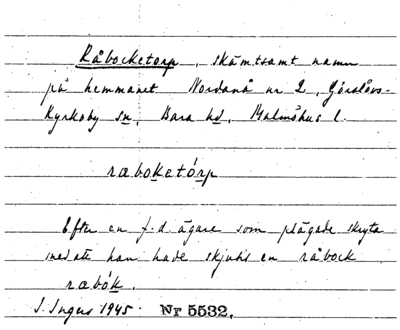 Råbocketorp, skämtsamt namn
på hemmanet Nordanå nr 2, Görslövs-
Kyrkoby sn, Bara hd, Malmöhus l.
ræboketórp
Efter en f.d. ägare som plägade skryta
med att han hade skjutit en råbock
ræbók.
J. Ingers 1945. Nr 5532.